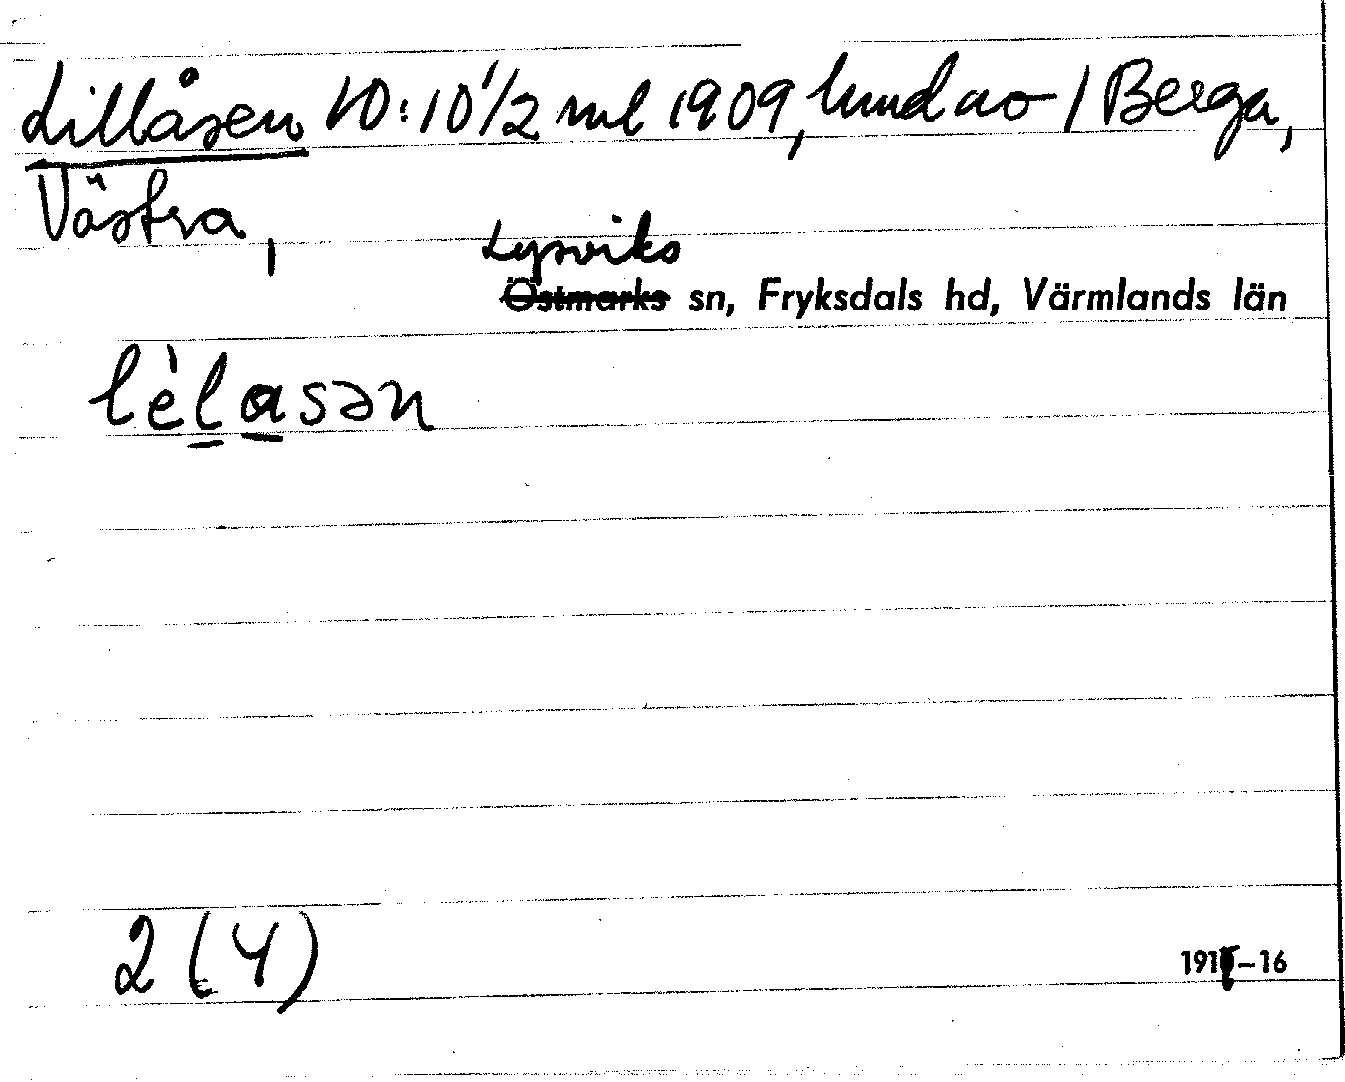 Lillåsen 10:10 1/2 ml 1909, lund ao / Berga,
Västra,
Lysviks
Östmarks sn, Fryksdals hd, Värmlands län
lèlasən
2 (4)
191 -16